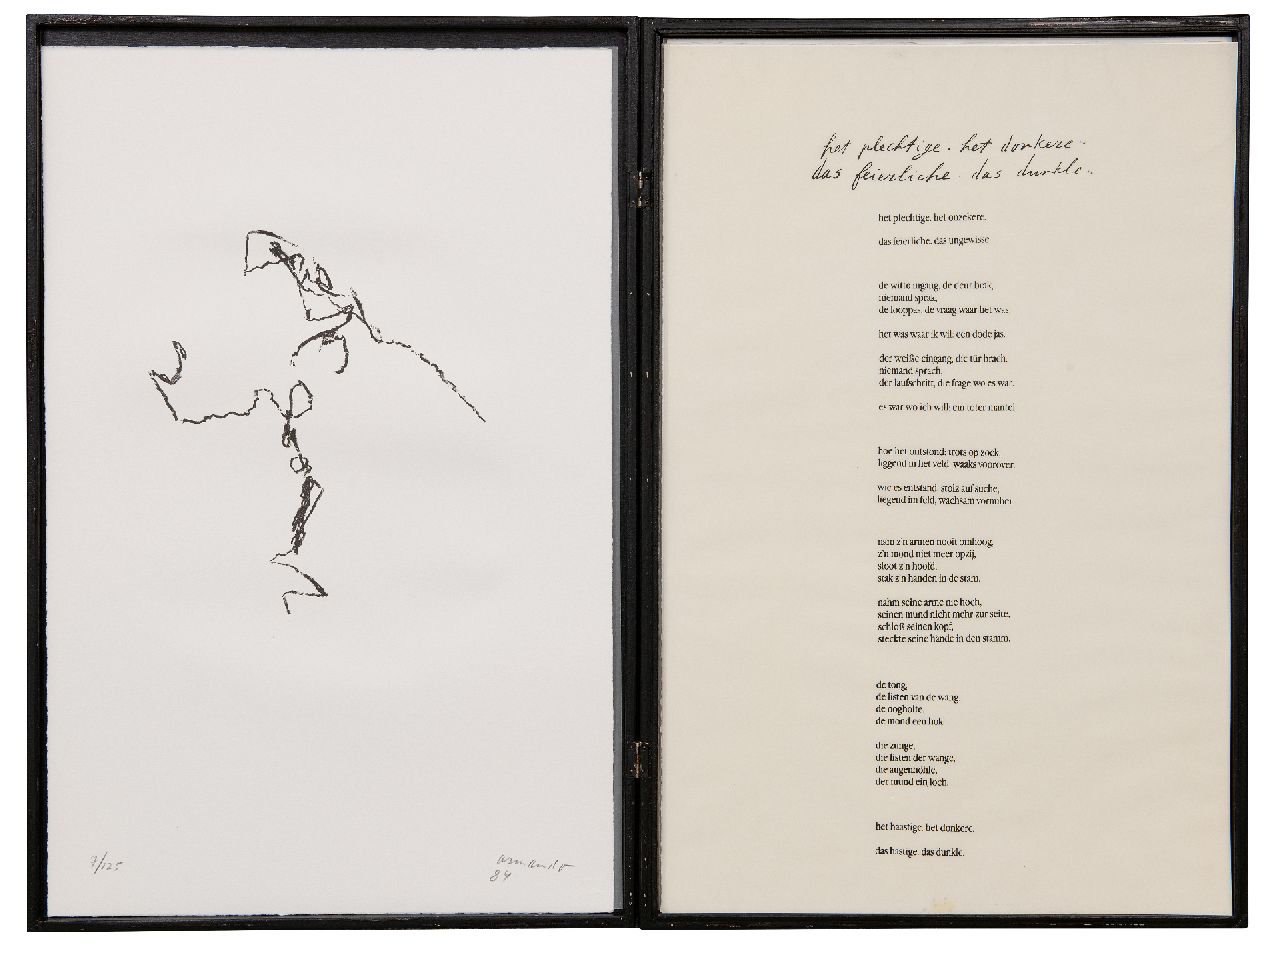 7/125
armando
84
het plechtige. het donkere.
das feierliche. das dunkle.
het plechtige. het onzekere.
das feierliche. das ungewisse
de witte ingang, de deur brak,
niemand sprak,
de looppas, de vraag waar het was.
het was waar ik wil: een dode jas.
der weiße eingang, die tür brach,
niemand sprach,
der laufschritt, die frage wo es war.
es war wo ich will: ein toter mantel
hoe het ontstond: trots op zoek
liggend in het veld, waaks voorover.
wie es entstand: stolz auf suche,
liegend im feld, wachsam vornüber
nam z'n armen nooit omhoog,
z'n mond niet meer opzij,
sloot z'n hoofd,
stak z'n handen in de stam.
nahm seine arme nie hoch,
seinen mund nicht mehr zur seite,
schloß seinen kopf,
steckte seine hände in den stamm.
de tong,
de listen van de wang
de oogholte,
de mond een hok
die zunge,
die listen der wange,
die augenhöhle,
der mund ein loch.
het haastige. het donkere.
das hastige. das dunkle.